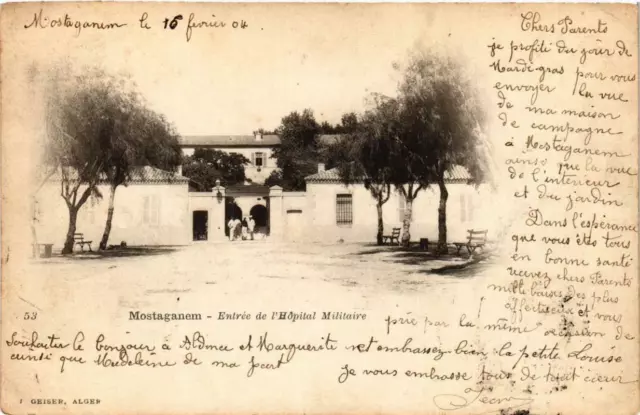 Mostaganem le 16 février 04
Chers Parents
je profite du jour de
Mardi-gras pour vous
envoyer la vue
de ma maison
de campagne
à Mostaganem
ainsi que la vue
de l'intérieur
et du jardin
Dans l'espérance
que vous êtes tous
en bonne santé
recevez chers Parents
mille baisers des plus
affectueux et vous
53
Mostaganem - Entrée de l'Hôpital Militaire
prie par la même occasion de
Souhaiter le bonjour à et Marguerite et embrassez bien la petite Louise
ainsi que Madeleine de ma part
je vous embrasse tous de tout cœur
GEISER, ALGER